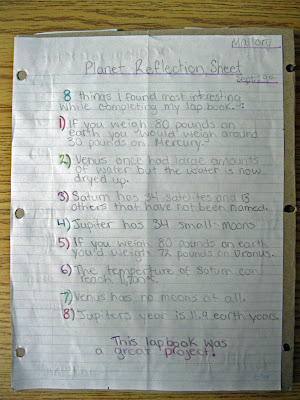 Mallory
Planet Reflection Sheet
8 things I found most interesting
while completing my lap book.
1) If you weigh 80 pounds on
earth you would weigh around
30 pounds on Mercury.
2) Venus once had large amounts
of water but the water is now
dryed up.
3) Saturn has 34 satelites and 13
others that have not been named.
4) Jupiter has 34 small moons
5) If you weigh 80 pounds on earth
you'd weigh 72 pounds on Uronus.
6) The temperture of Saturn can
reach
7) Venus has no moons at all.
8) Jupiters year is 11.9 earth years.
This lapbook was
a great project!